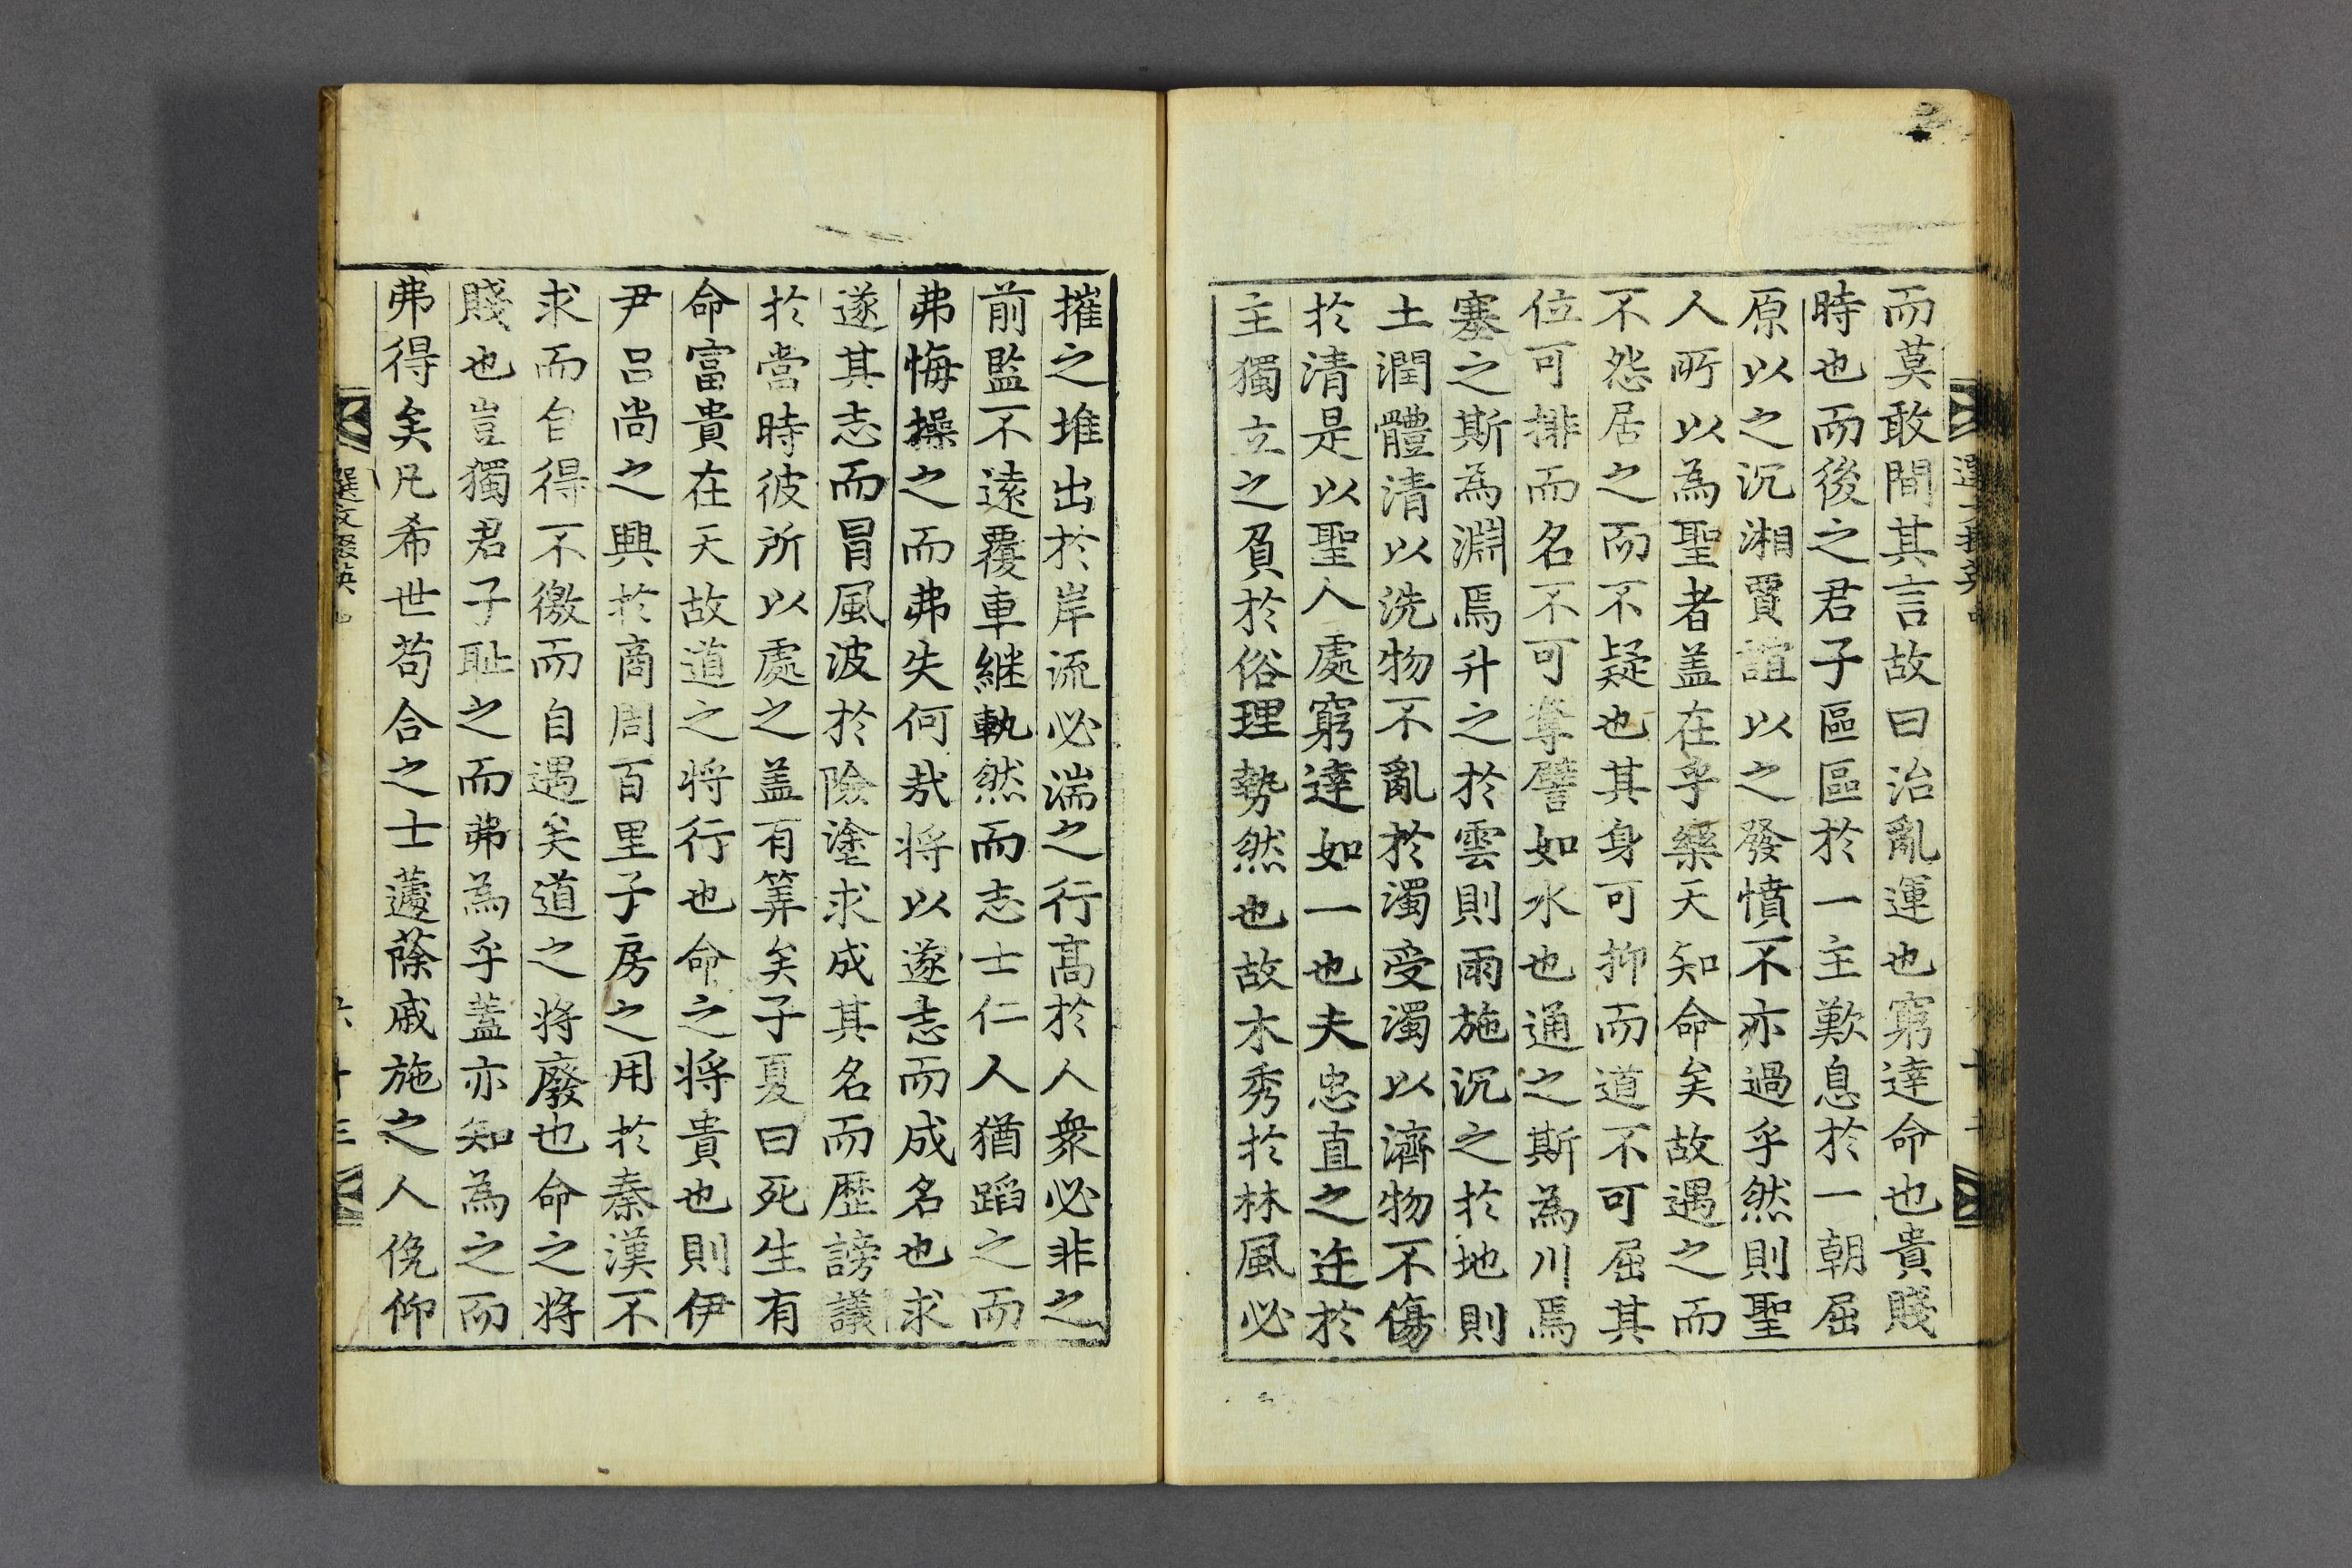 而莫敢間其言故曰治亂運也窮達命也貴賤
時也而後之君子區區於一主歎息於一朝屈
原以之沉湘賈誼以之發憤不亦過乎然則聖
人所以為聖者盖在乎樂天知命矣故遇之而
不怨居之而不疑也其身可抑而道不可屈其
位可排而名不可奪譬如水也通之斯為川焉
塞之斯為淵焉升之於雲則雨施沉之於地則
土潤體清以洗物不亂於濁受濁以濟物不傷
於清是以聖人處窮達如一也夫忠直之迕於
主獨立之負於俗理勢然也故木秀於林風必
摧之堆出於岸流必湍之行髙於人衆必非之
前監不遠覆車継軌然而志士仁人猶蹈之而
弗悔操之而弗失何㢤将以遂志而成名也求
遂其志而冒風波於險塗求成其名而歷謗議
於當時彼所以處之盖有筭矣子夏曰死生有
命富貴在天故道之将行也命之将貴也則伊
尹呂尚之興於商周百里子房之用於秦漢不
求而自得不徼而自遇矣道之将廢也命之将
賤也豈獨君子耻之而弗為乎蓋亦知為之而
弗得矣凡希世苟合之士蘧蒢戚施之人俛仰
選文掇英 四
六十三